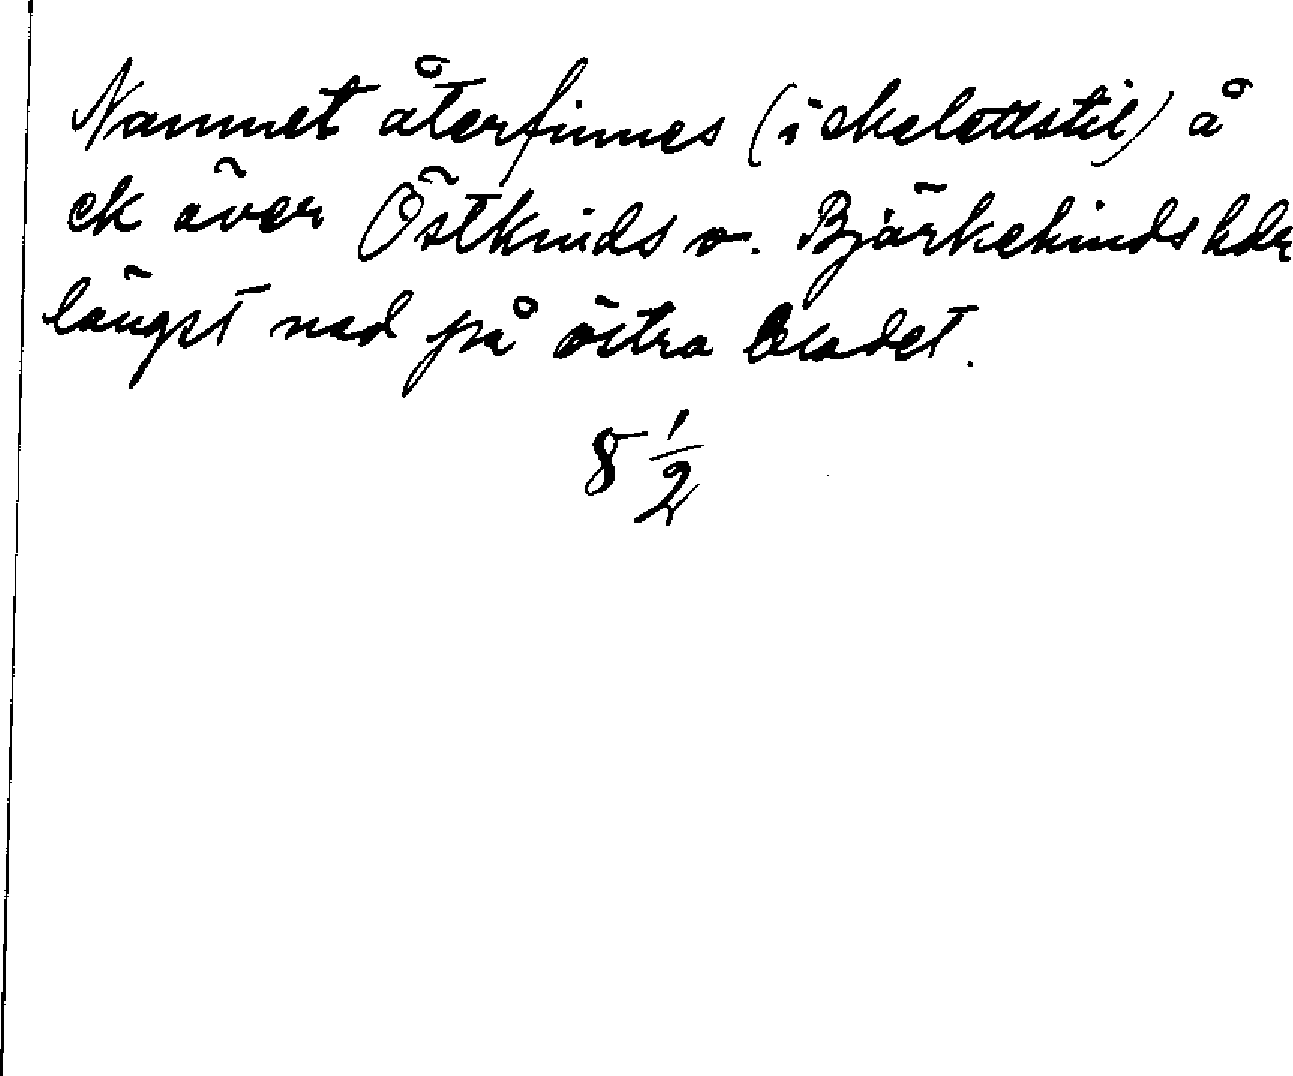 Namnet återfinnes (i skelettstil) å
ek över Östkinds o. Björkekinds hdr
längst ned på östra bladet.
8 1/2